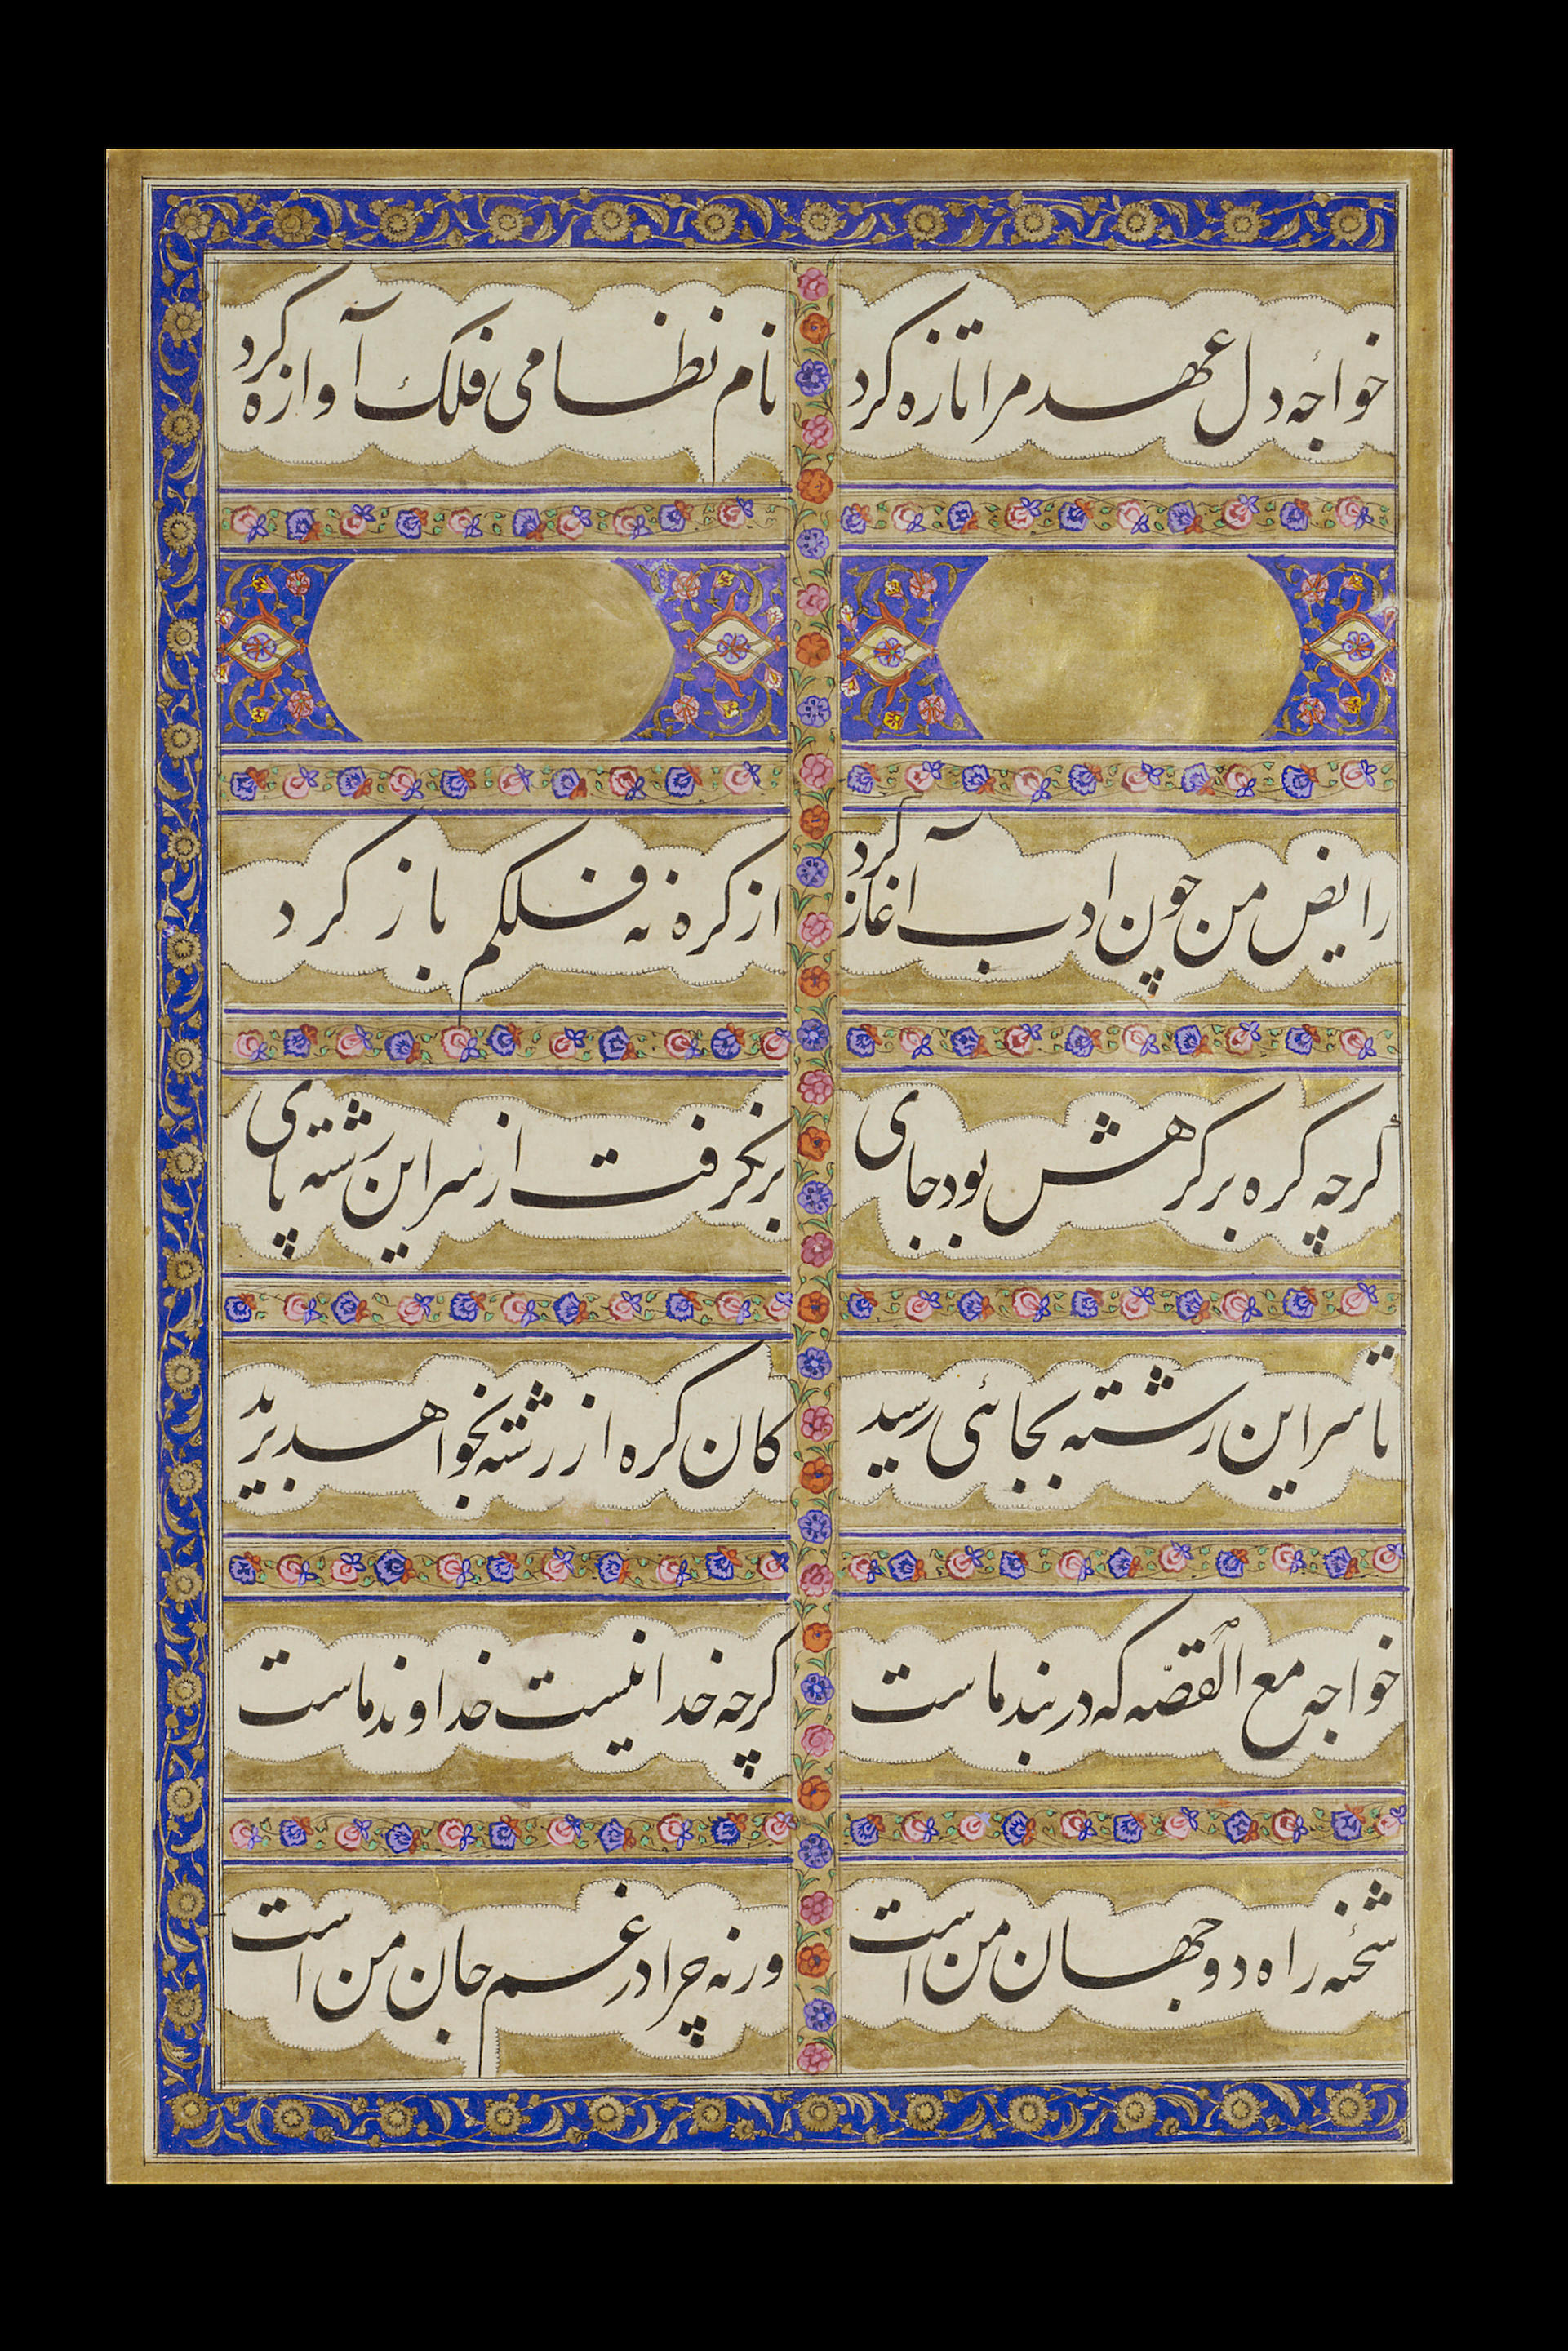 خواجه دل عهد مرا تازه کرد
نام نظامی فلک آوازه کرد
رایض من چون ادب آغاز کرد
از کره نه فلکم باز کرد
گرچه گره بر گرهش بود جای
برنگرفت از سر این رشته پای
تا سر این رشته بجائی رسید
کان گره از رشته بخواهد برید
خواجه مع القصّه که در بند ماست
گرچه خدا نیست خداوند ماست
شحنه راه دو جهان من است
ورنه چرا در غم جان من است